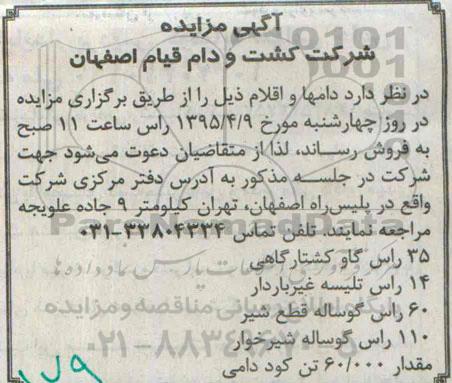 آگهی مزایده
شرکت کشت و دام قیام اصفهان
در نظر دارد دامها و اقلام ذیل را از طریق برگزاری مزایده
در روز چهارشنبه مورخ ۱۳۹۵/۴/۹ راس ساعت ۱۱ صبح
به فروش رساند، لذا از متقاضیان دعوت می‌شود جهت
شرکت در جلسه مذکور به آدرس دفتر مرکزی شرکت
واقع در پلیس‌راه اصفهان، تهران کیلومتر ۹ جاده علویجه
مراجعه نمایند. تلفن تماس ۳۳۸۰۴۳۳۴-۰۳۱
۳۵ راس گاو کشتارگاهی
۱۴ راس تلیسه غیرباردار
۶۰ راس گوساله قطع شیر
۱۱۰ راس گوساله شیرخوار
مقدار ۶۰/۰۰۰ تن کود دامی